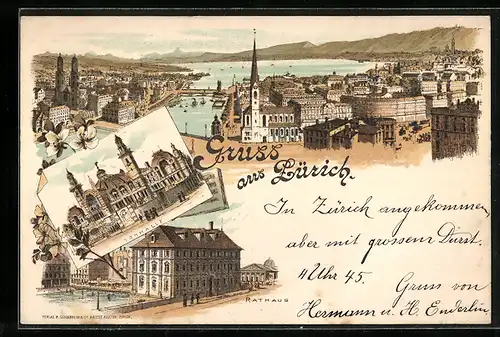 Gruss
aus Zürich.
In Zürich angekommen
aber mit grossem Durst.
11 Uhr 45.
Gruss von
Hermann u. H. Enderlin
RATHAUS